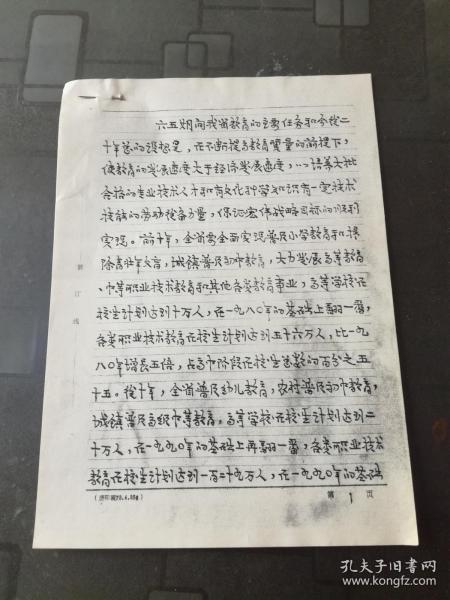 六五期间我省教育的主要任务和今后二
十年总的设想是，在不断提高教育质量的前提下，
使教育的发展速度大于经济发展速度，以培养大批
合格的专业技术人才和有文化科学知识有一定技术
技能的劳动后备力量，保证宏伟战略目标的胜利
实现。前十年，全省要全面实现普及小学教育和扫
除青壮年文盲，城镇普及初中教育，大力发展高等教育
、中等职业技术教育和其他各类教育事业，高等学校在
校生计划达到十万人，在一九八〇年的基础上翻一番，
各类职业技术教育在校生计划达到五十六万人，比一九
八〇年增长五倍，占高中阶段在校生总数的百分之五
十五。后十年，全省普及幼儿教育，农村普及初中教育，
城镇普及高级中等教育，高等学校在校生计划达到二
十万人，在一九九〇年的基础上再翻一番，各类职业技术
教育在校生计划达到一百二十九万人，在一九九〇年的基础
第 1 页
孔夫子旧书网
www.kongfz.com